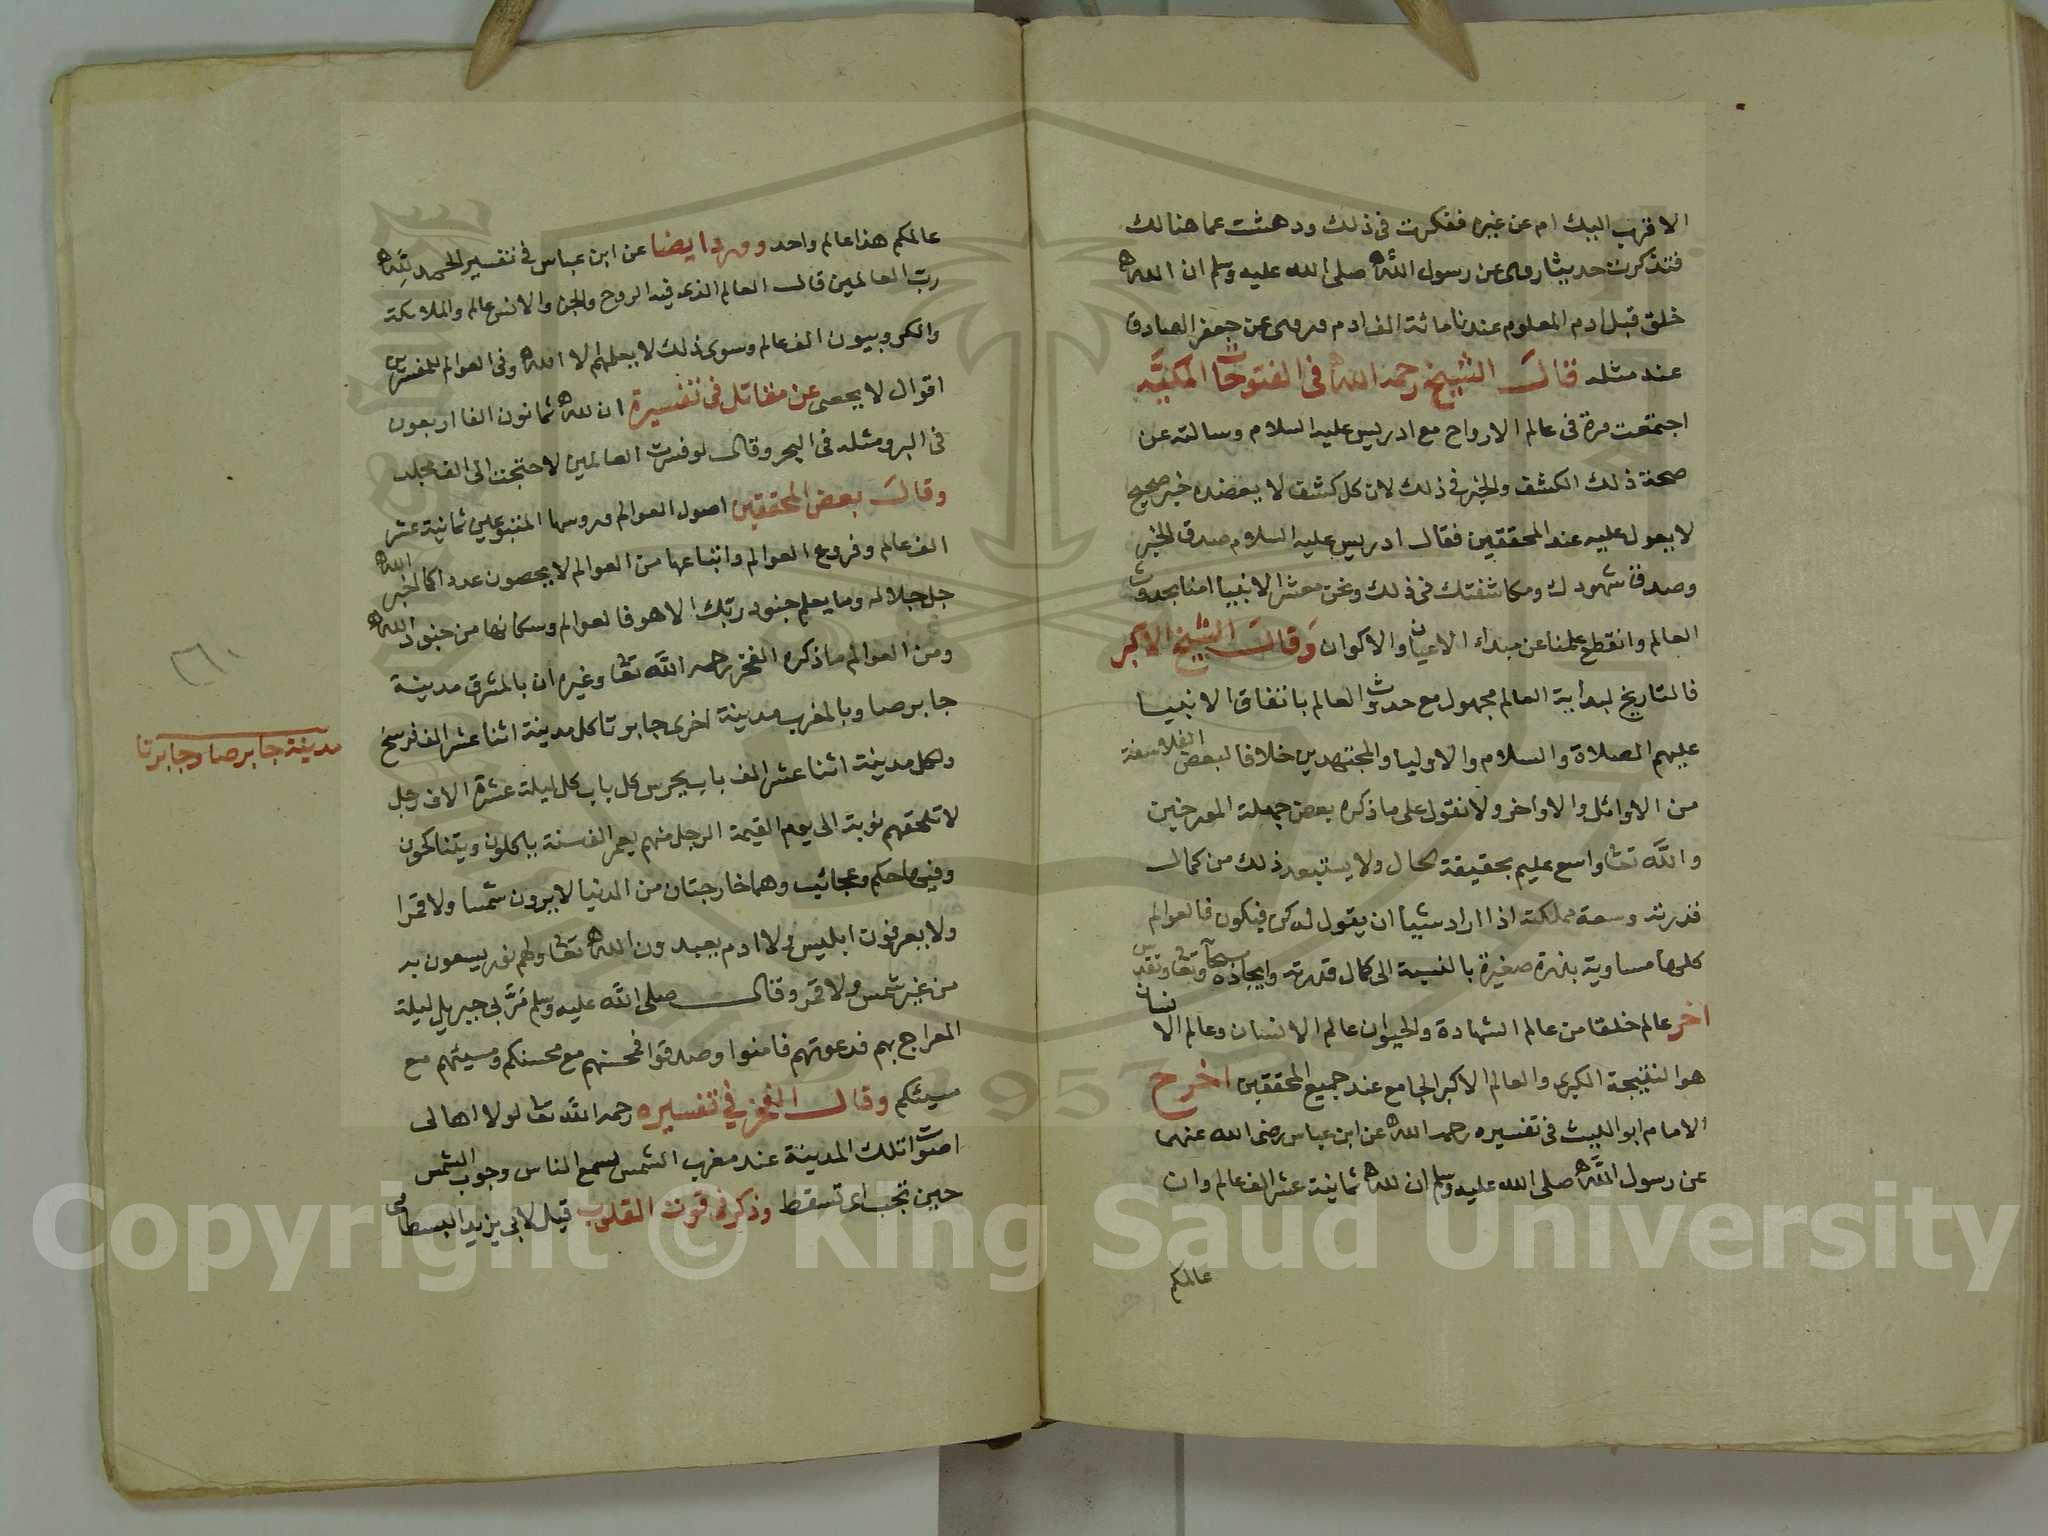 الاقرب اليك ام عن غيره ففكرت فى ذلك ودهشت عما هنالك
فتذكرت حديثا روى عن رسول الله صلى الله عليه وسلم ان الله
خلق قبل ادم المعلوم عندنا مائة الف ادم وروى عن جعفر الصادق
عند مثله قال الشيخ رحمه الله فى الفتوحات المكيه
اجتمعت مرة فى عالم الارواح مع ادريس عليه السلام وسالته عن
صحة ذلك الكشف والخبر فى ذلك لان كل كشف لا يعضده خبر صحيح
لا يعول عليه عند المحققين فقال ادريس عليه السلام صدق الخبر
وصدق شهودك ومكاشفتك فى ذلك ونحن معشر الانبيا امنا بحدوث
العالم وانقطع علمنا عن مبداء الاعيان والاكوان وقال الشيخ الاكبر
فالتاريخ لبداية العالم مجهول مع حدوث العالم باتفاق الانبيا
عليهم الصلاة والسلام والاوليا والمجتهدين خلافا لبعض الفلاسفة
من الاوائل والاواخر ولا نقول على ما ذكره بعض جهلة المورخين
والله تعا واسع عليم بحقيقة الحال ولا يستبعد ذلك من كمال
قدرته وسعة مملكته اذا اراد شيئا ان يقول له كن فيكون فالعوالم
كلها مساوية بذرة صغيرة بالنسبة الى كمال قدرته وايجاده سبحانه وتعا وتقدس
اخر عالم خلقا من عالم الشهادة والحيوان عالم الانسان وعالم الانسان
هو النتيجة الكبرى والعالم الاكبر الجامع عند جميع المحققين اخرج
الامام ابو الليث فى تفسيره رحمه الله عن ابن عباس رضى الله عنهما
عن رسول الله صلى الله عليه وسلم ان لله ثمانية عشر الف عالم وان
عالمكم
عالمكم هذا عالم واحد وورد ايضا عن ابن عباس فى تفسير الحمد لله
رب العالمين قال العالم الذى فيه الروح والجن والانس عالم والملائكة
والكروبيون الف عالم وسوى ذلك لا يعلمهم الا الله وفى العوالم للمفسرين
اقوال لا يحصى عن مقاتل فى تفسيرة ان لله ثمانون الفا اربعون
فى البر ومثله فى البحر وقال لو فسرت العالمين لاحتجت الى الف مجلد
وقال بعض المحققين اصول العوالم وروسها المنتبه على ثمانية عشر
الف عالم وفروع العوالم واتباعها من العوالم لا يحصون عددا كما اخبر الله
جل جلاله وما يعلم جنود ربك الا هو فالعوالم وسكانها من جنود الله
ومن العوالم ما ذكره الفخر رحمه الله تعا وغيره ان بالمشرق مدينة
جابرصا وبالمغرب مدينة اخرى جابرتا كل مدينة اثنا عشر الف فرسخ
ولكل مدينة اثنا عشر الف باب يحرس كل باب كل ليلة عشرة الاف رجل
لا تلحقهم نوبة الى يوم القيمة الرجل منهم يعمر الف سنة ياكلون ويتناكحون
وفيها حكم وعجائب وهما خارجتان من الدنيا لا يرون شمسا ولا قمرا
ولا يعرفون ابليس ولا ادم يعبدون الله تعا ولهم نور يسعون به
من غير شمس ولا قمر وقال صلى الله عليه وسلم مر بى جبريل ليلة
المعراج بهم فدعوتهم فامنوا وصدقوا فمحسنهم مع محسنكم ومسيئهم مع
مسيئكم وقال الفخر فى تفسيره رحمه الله تعا لولا اهالى
اصوات تلك المدينة عند مغرب الشمس لسمع الناس وجوب الشمس
حين تجب اى تسقط وذكر فى قوت القلوب قيل لابى يزيد البسطامى
مدينة جابرصا وجابرتا
Copyright © King Saud University
1957